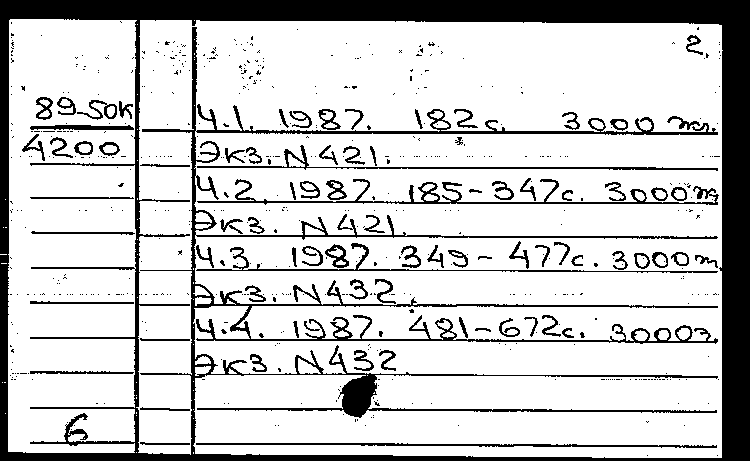 2.
89-50к
4200
Ч.1. 1987. 182с. 3000 экз.
Экз. N 421.
Ч.2. 1987. 185-347с. 3000
Экз. N 421.
Ч.3. 1987. 349-477с. 3000
Экз. N 432.
Ч.4. 1987. 481-672с. 3000э.
Экз. N 432
6